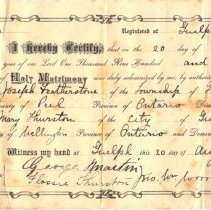 Registered at Guelph
I Hereby Certify, that on the 20 day
year of our Lord One Thousand Nine Hundred and
Holy Matrimony was duly solemnized by me, by authority
Joseph Featherstone of the Township of
County of Peel Province of Ontario
Mary Thurston of the City of Gu
of Wellington Province of Ontario and Dom
Witness my hand at Guelph this 20 day of Au
George Martin
Flossie Thurston Jno. W. Woo